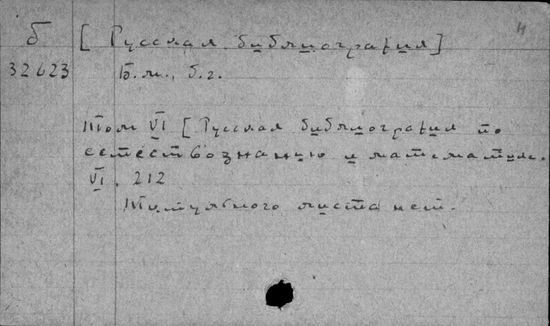 б [Русская библиография] 4
32623 Б.м., б.г.
Том VI [Русская библиография по
естествознанию и математике.
VI. 212
Титульного листа нет.